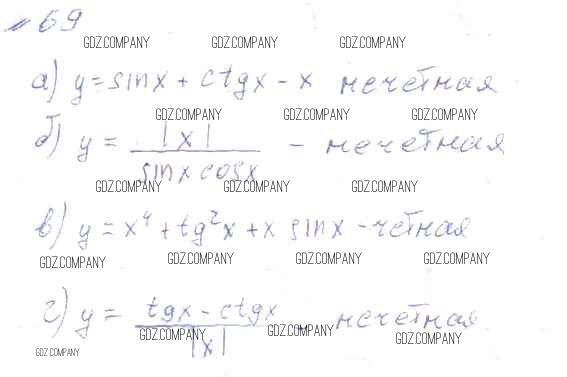 № 69
GDZ.COMPANY GDZ.COMPANY GDZ.COMPANY
а) y = sinx + ctgx - x нечётная
GDZ.COMPANY GDZ.COMPANY GDZ.COMPANY
б) y = |x| / sinx cosx - нечётная
GDZ.COMPANY GDZ.COMPANY GDZ.COMPANY
в) y = x⁴ + tg²x + x sinx - чётная
GDZ.COMPANY GDZ.COMPANY GDZ.COMPANY GDZ.COMPANY
г) y = tgx - ctgx / |x| - нечётная
GDZ.COMPANY GDZ.COMPANY GDZ.COMPANY